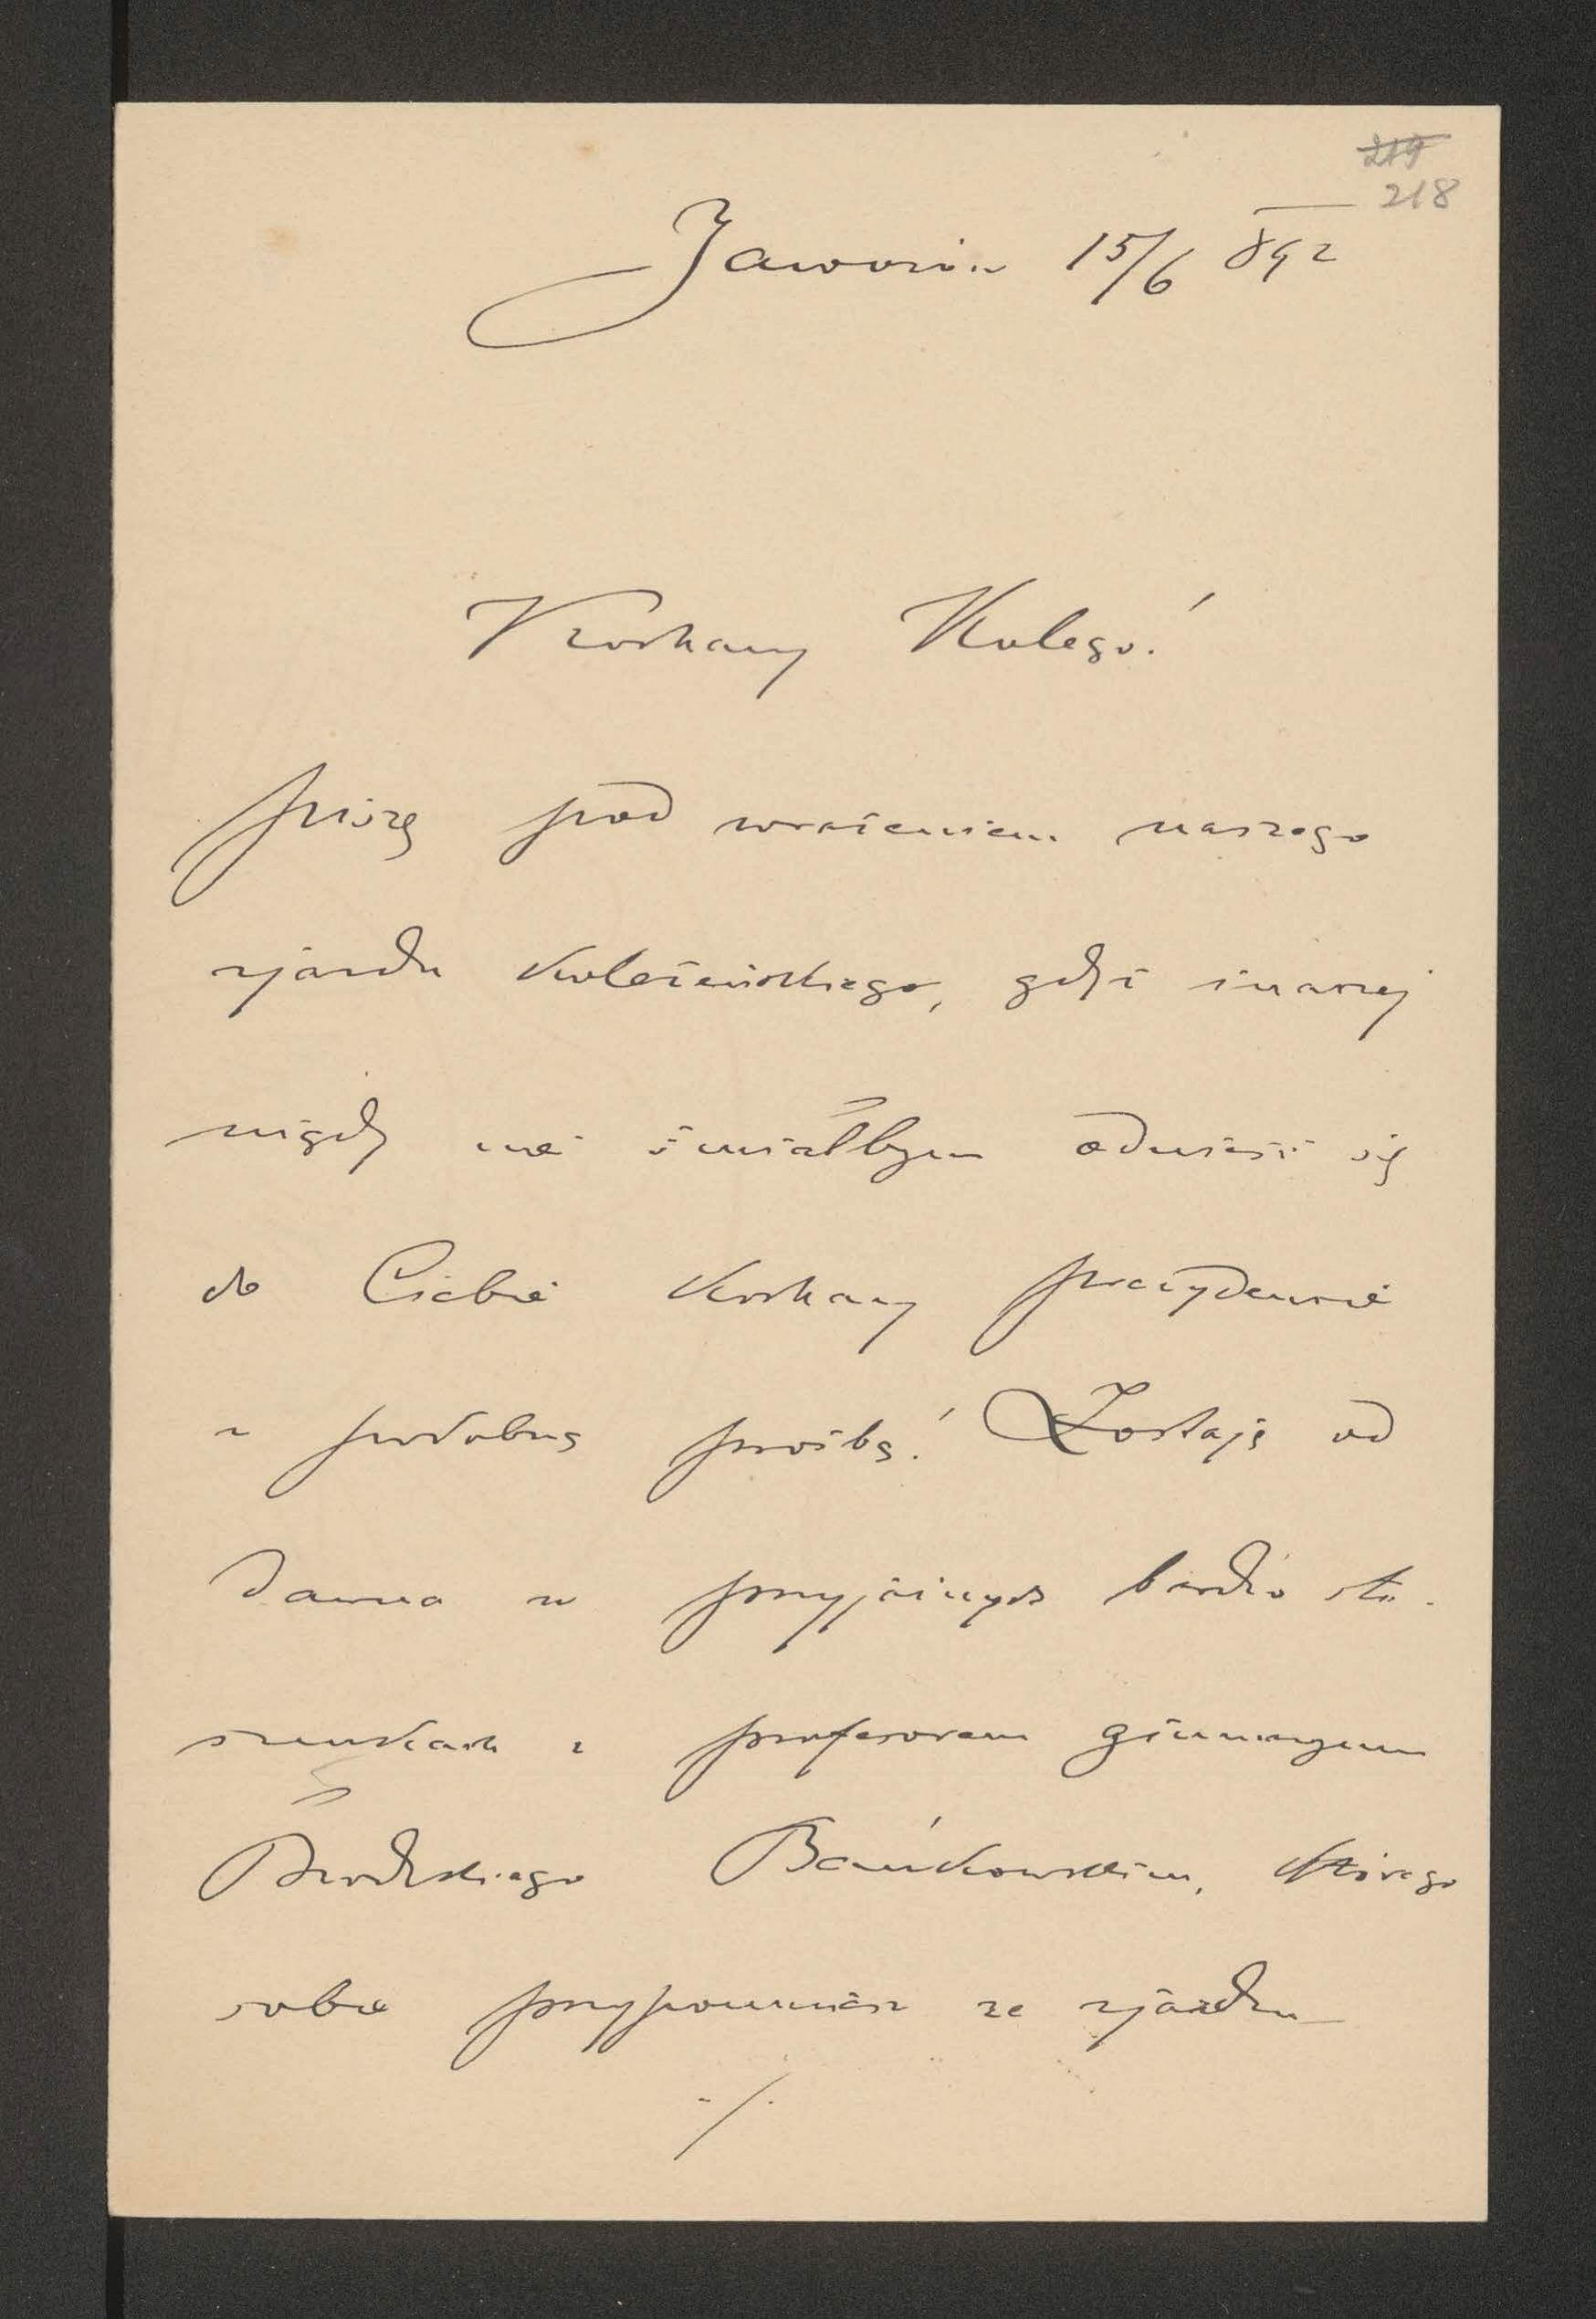 219
218
Jaworów 15/6 892
Kochany Kolego!
piszę pod wrażeniem naszego
zjazdu koleżeńskiego, gdyż inaczej
nigdy nie śmiałbym odnieść się
do Ciebie kochany prezydencie
z podobną prośbą! Zostaję od
dawna w przyjaznych bardzo sto-
sunkach z profesorem gimnazyum
Brodzkiego Bańkowskim, którego
sobie przypomnisz ze zjazdu
./.